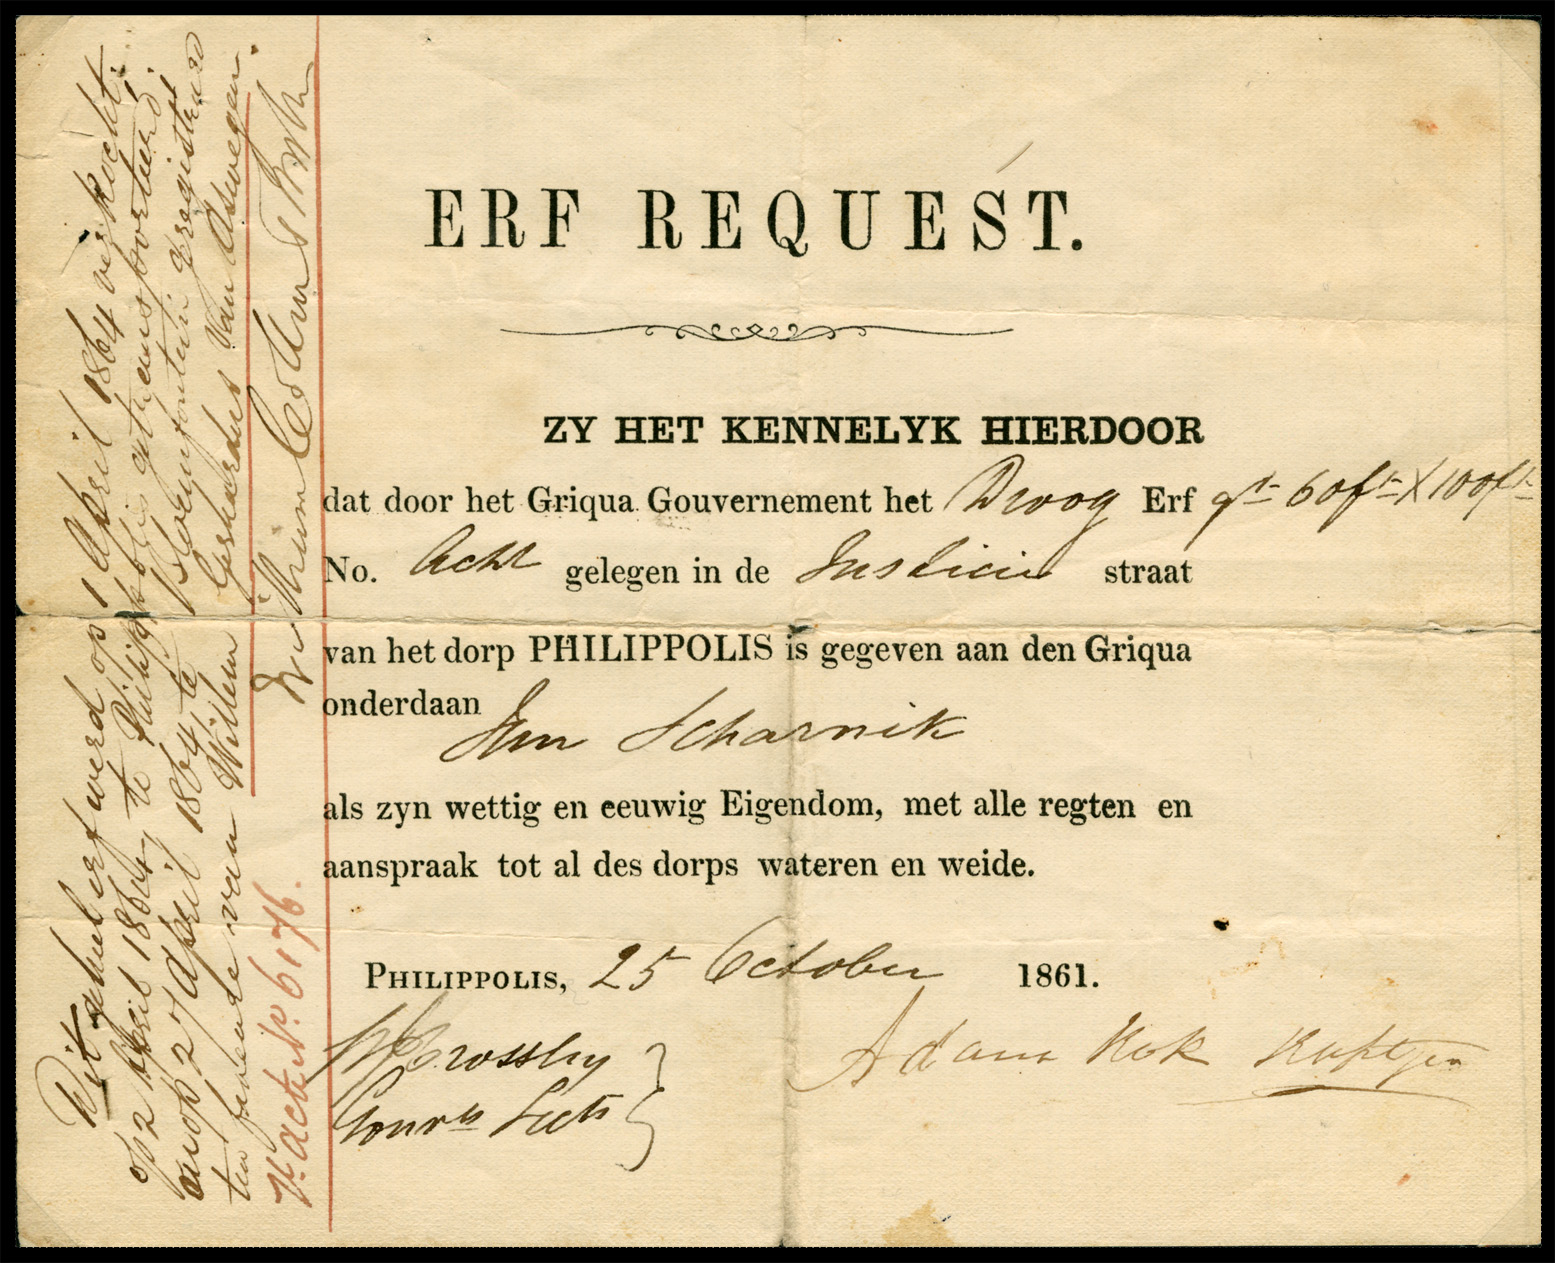 ERF REQUEST.
ZY HET KENNELYK HIERDOOR
dat door het Griqua Gouvernement het Droog Erf gt 60ft X 100ft
No. Acht gelegen in de Justicie straat
van het dorp PHILIPPOLIS is gegeven aan den Griqua
onderdaan
Jan Scharnik
als zyn wettig en eeuwig Eigendom, met alle regten en
aanspraak tot al des dorps wateren en weide.
PHILIPPOLIS, 25 October 1861.
Adam Kok Kaptyn
W Crossley
Gouvts Sects
Dit geheel erf werd op 1 April 1864 verkocht
op 2 April 1864 te Philippolis getransporteerd
en op 27 April 1864 te Bloemfontein geregistreerd
ten faveure van Willem Gerhardus Van Aswegen.
Willem Collins
V. acte No. 6176.